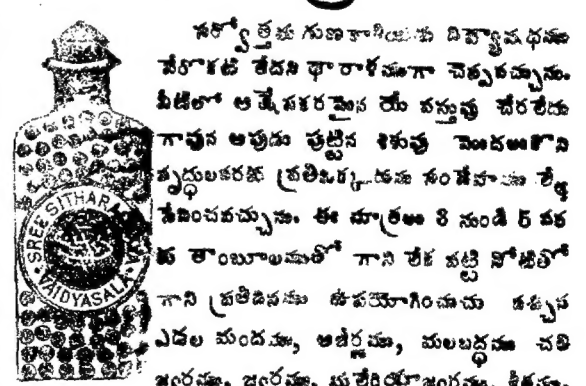 సర్వోత్తమ గుణకారియగు దివ్యౌషధము
వేరొకటి లేదని ధారాళముగా చెప్పవచ్చును.
వీటిలో ఆక్షేపకరమైన యే వస్తువు చేరలేదు
గావున అపుడు పుట్టిన శిశువు మొదలుకొని
వృద్ధులవరకు ప్రతిఒక్కడును సందేహము లేక
సేవించవచ్చును. ఈ మాత్రలు 3 నుండి 5 వర
కు తాంబూలముతో గాని లేక వట్టి నోటితో
గాని ప్రతిదినము ఉపయోగించుచు వచ్చిన
ఎడల మందము, అజీర్ణము, మలబద్ధము చలి
జ్వరము, జ్వరము, మలేరియాజ్వరము,
SREE SITHARAMA
VAIDYASALA